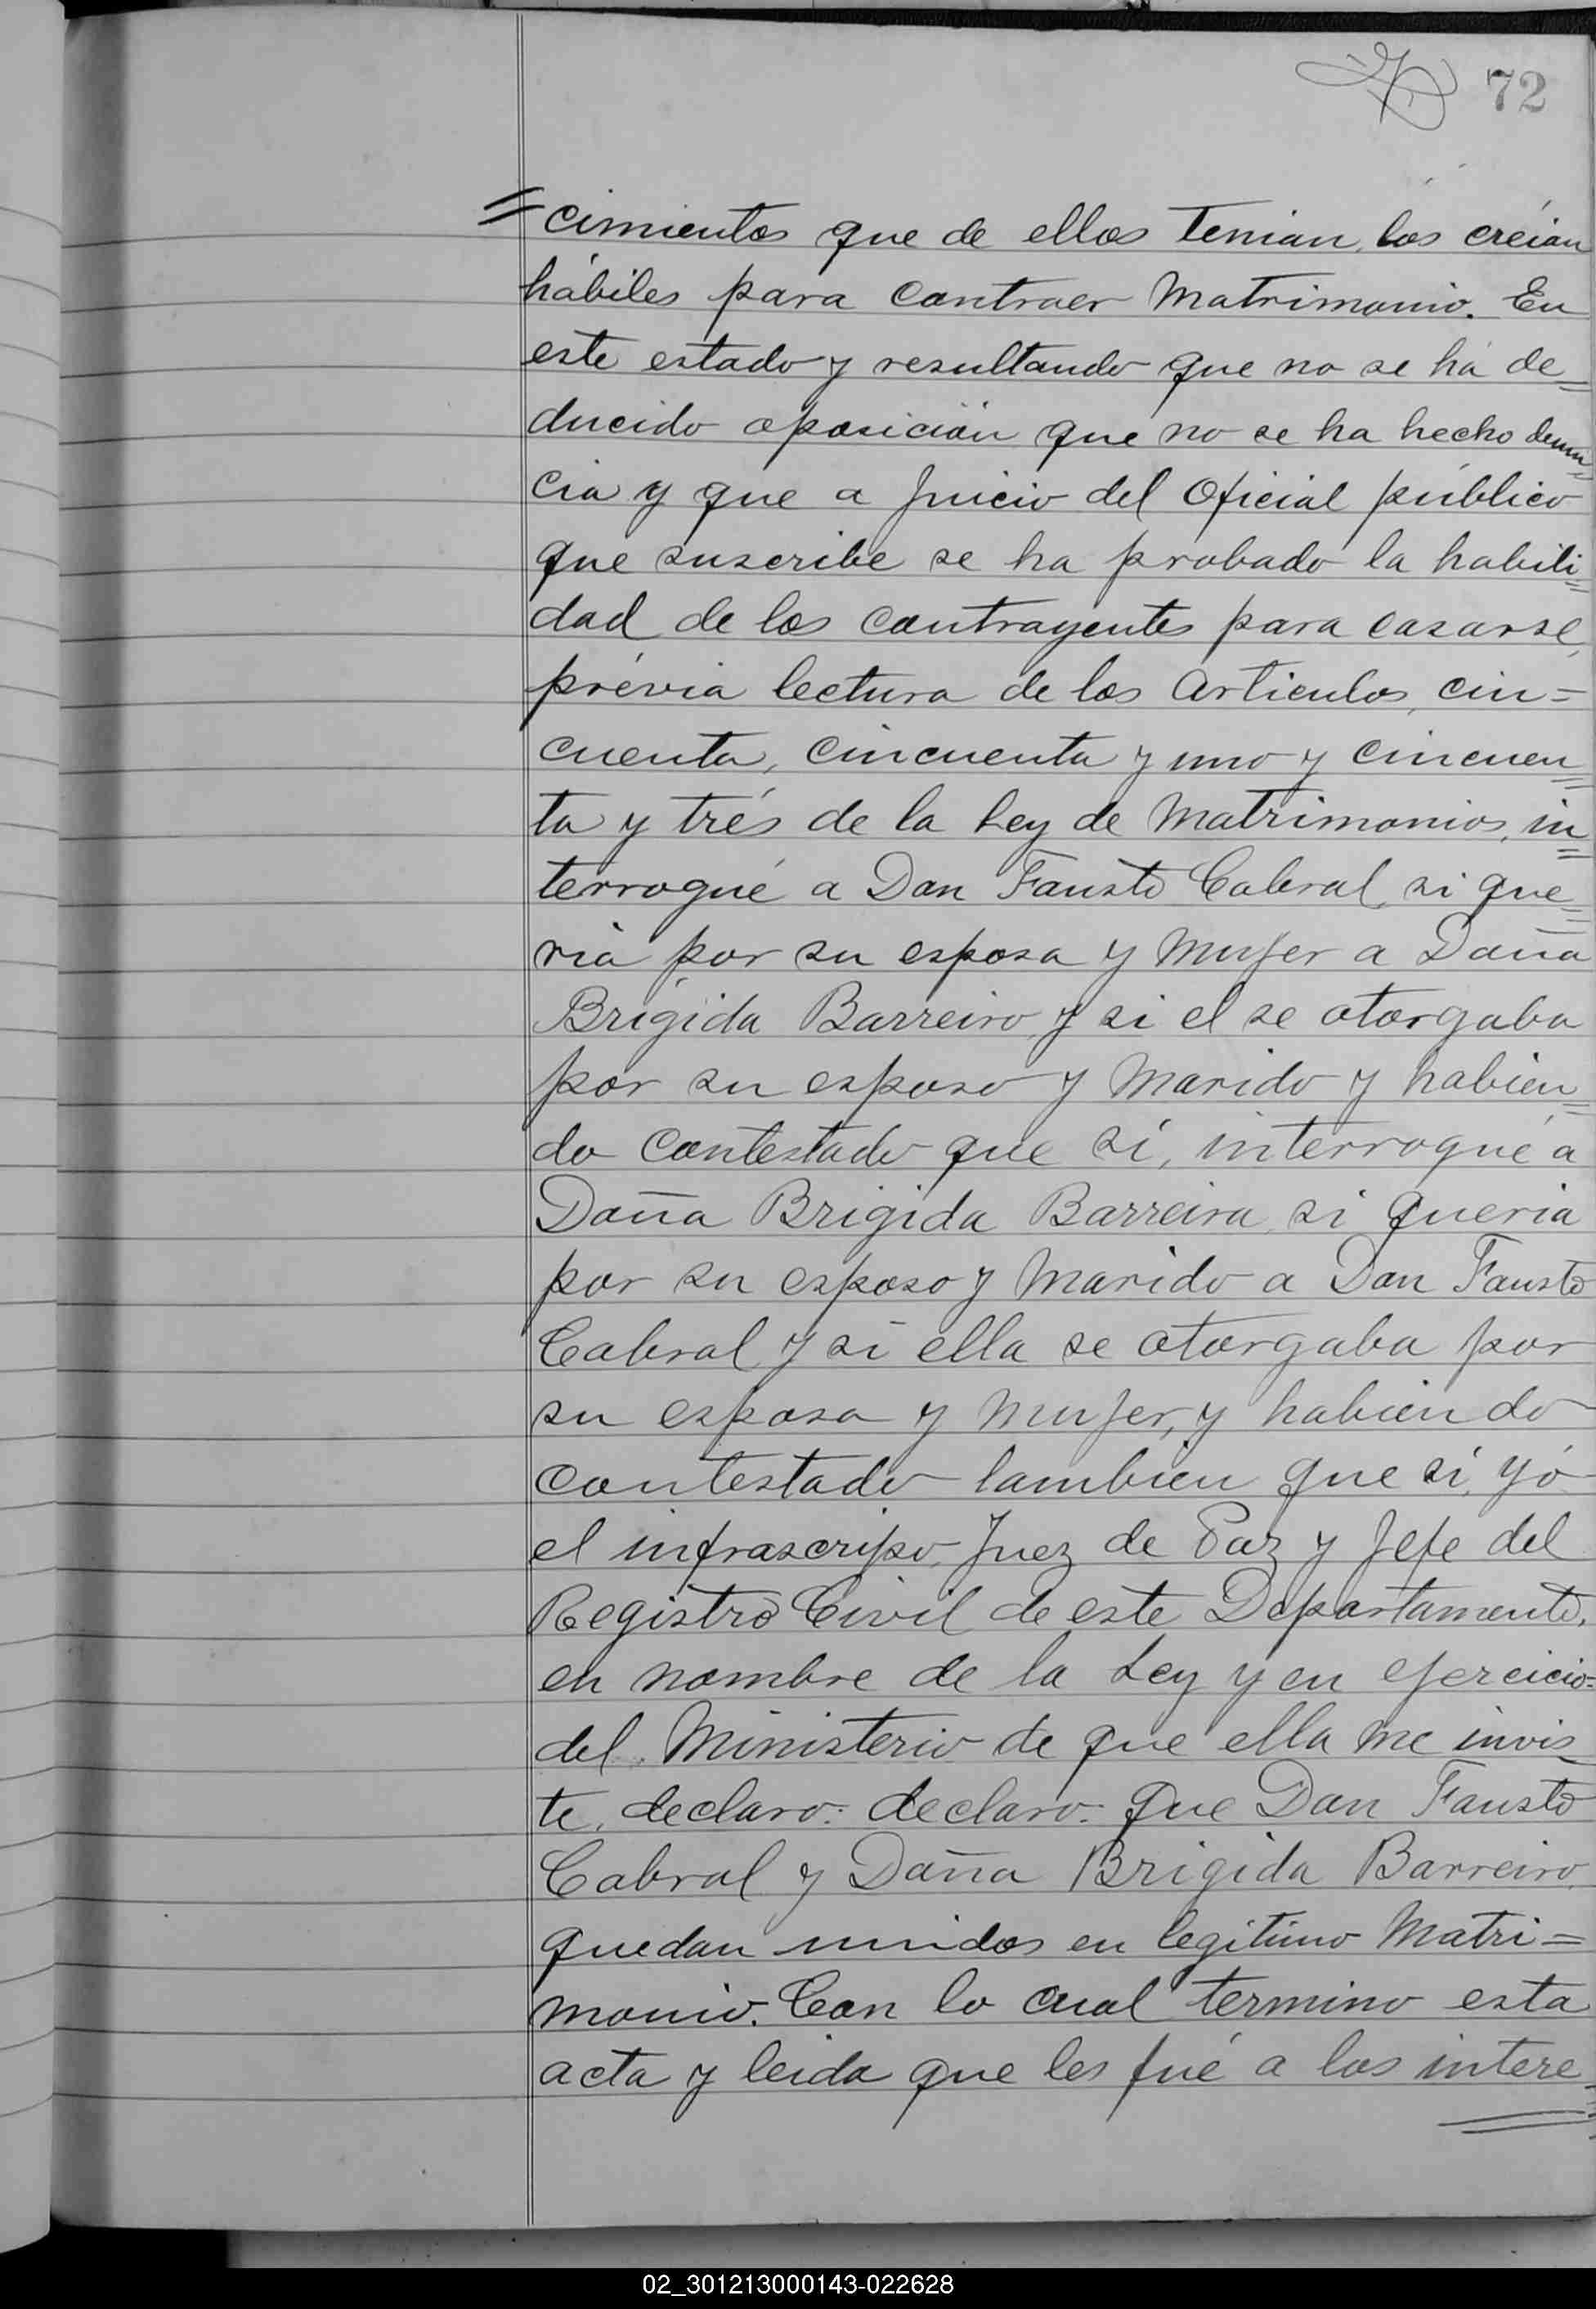 72
=cimientos que de ellos tenian, los creían
hábiles para contraer Matrimonio. En
este estado y resultando que no se há de=
ducido oposición que no se ha hecho denun=
cia y que a juicio del Oficial público
que suscribe se ha probado la habili=
dad de los contrayentes para casarse,
prévia lectura de los Articulos, cin=
cuenta, cincuenta y uno y cincuen=
ta y trés de la Ley de Matrimonios, in=
terrogué a Don Fausto Cabral, si que=
ria por su esposa y Mujer a Doña
Brigida Barreiro, y si el se otorgaba
por su esposo y Marido y habien=
do contestado que sí, interrogué a
Doña Brigida Barreira, si queria
por su esposo y Marido a Don Fausto
Cabral y si ella se otorgaba por
su esposa y Mujer, y habiendo
contestado tambien que sí, yó
el infrascripo, Juez de Paz y Jefe del
Registro Civil de este Departamento,
en nombre de la Ley y en ejercicio=
del Ministerio de que ella me invis
te, declaro: declaro: Que Don Fausto
Cabral y Doña Brigida Barreiro,
quedan unidos en legitimo Matri=
monio. Con lo cual termino esta
acta y leida que les fué a los intere=
02_301213000143-022628